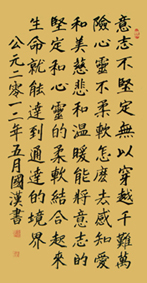 意志不堅定無以穿越千難萬
險心靈不柔軟怎麼去感知愛
和美慈悲和溫暖能將意志的
堅定和心靈的柔軟結合起來
生命就能達到通達的境界
公元二零一二年五月國漢書